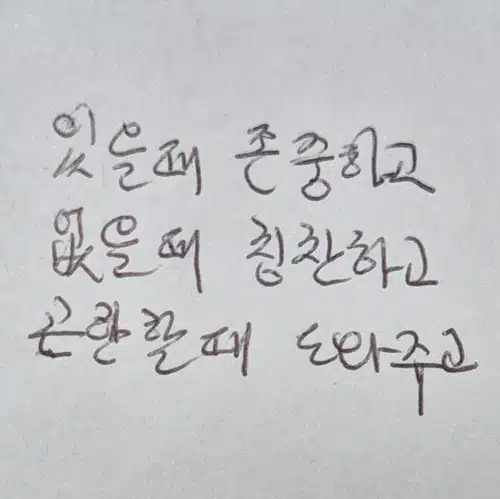 있을때 존중하고
없을때 칭찬하고
곤란할때 도와주고